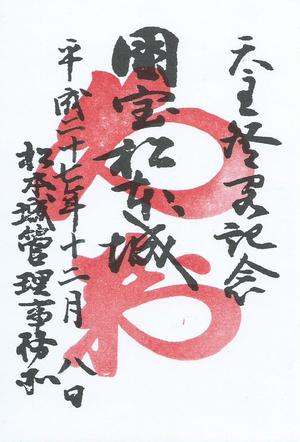 天主登閣記念
國宝松本城
平成二十七年十二月八日
松本城管理事務所